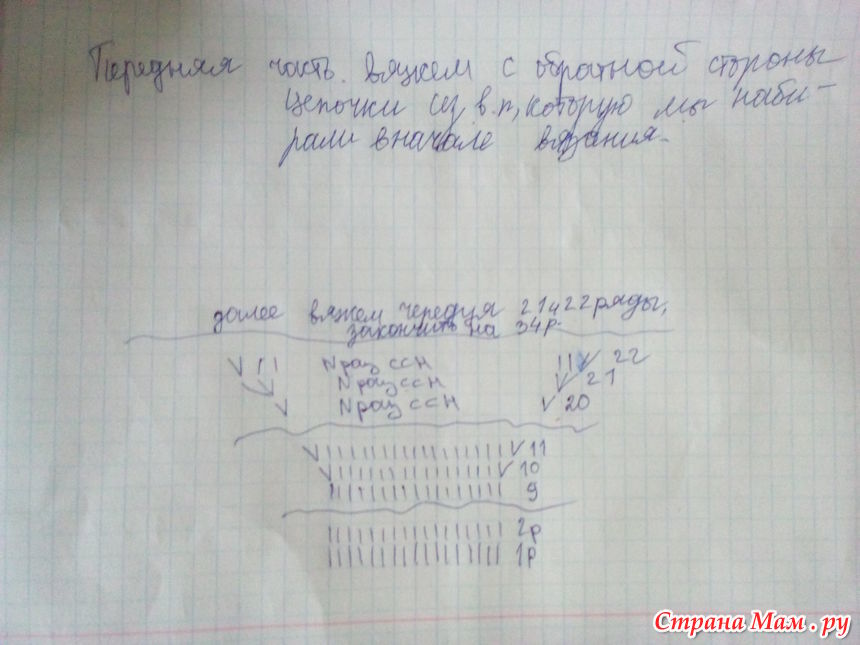 Передняя часть. Вяжем с обратной стороны
цепочки из в.п, которую мы наби-
рали вначале вязания.
далее вяжем чередуя 21 и 22 ряды,
закончить на 34р.
N раз ССН 22
N раз ССН 21
N раз ССН 20
11
10
9
2р
1р
Страна Мам.ру